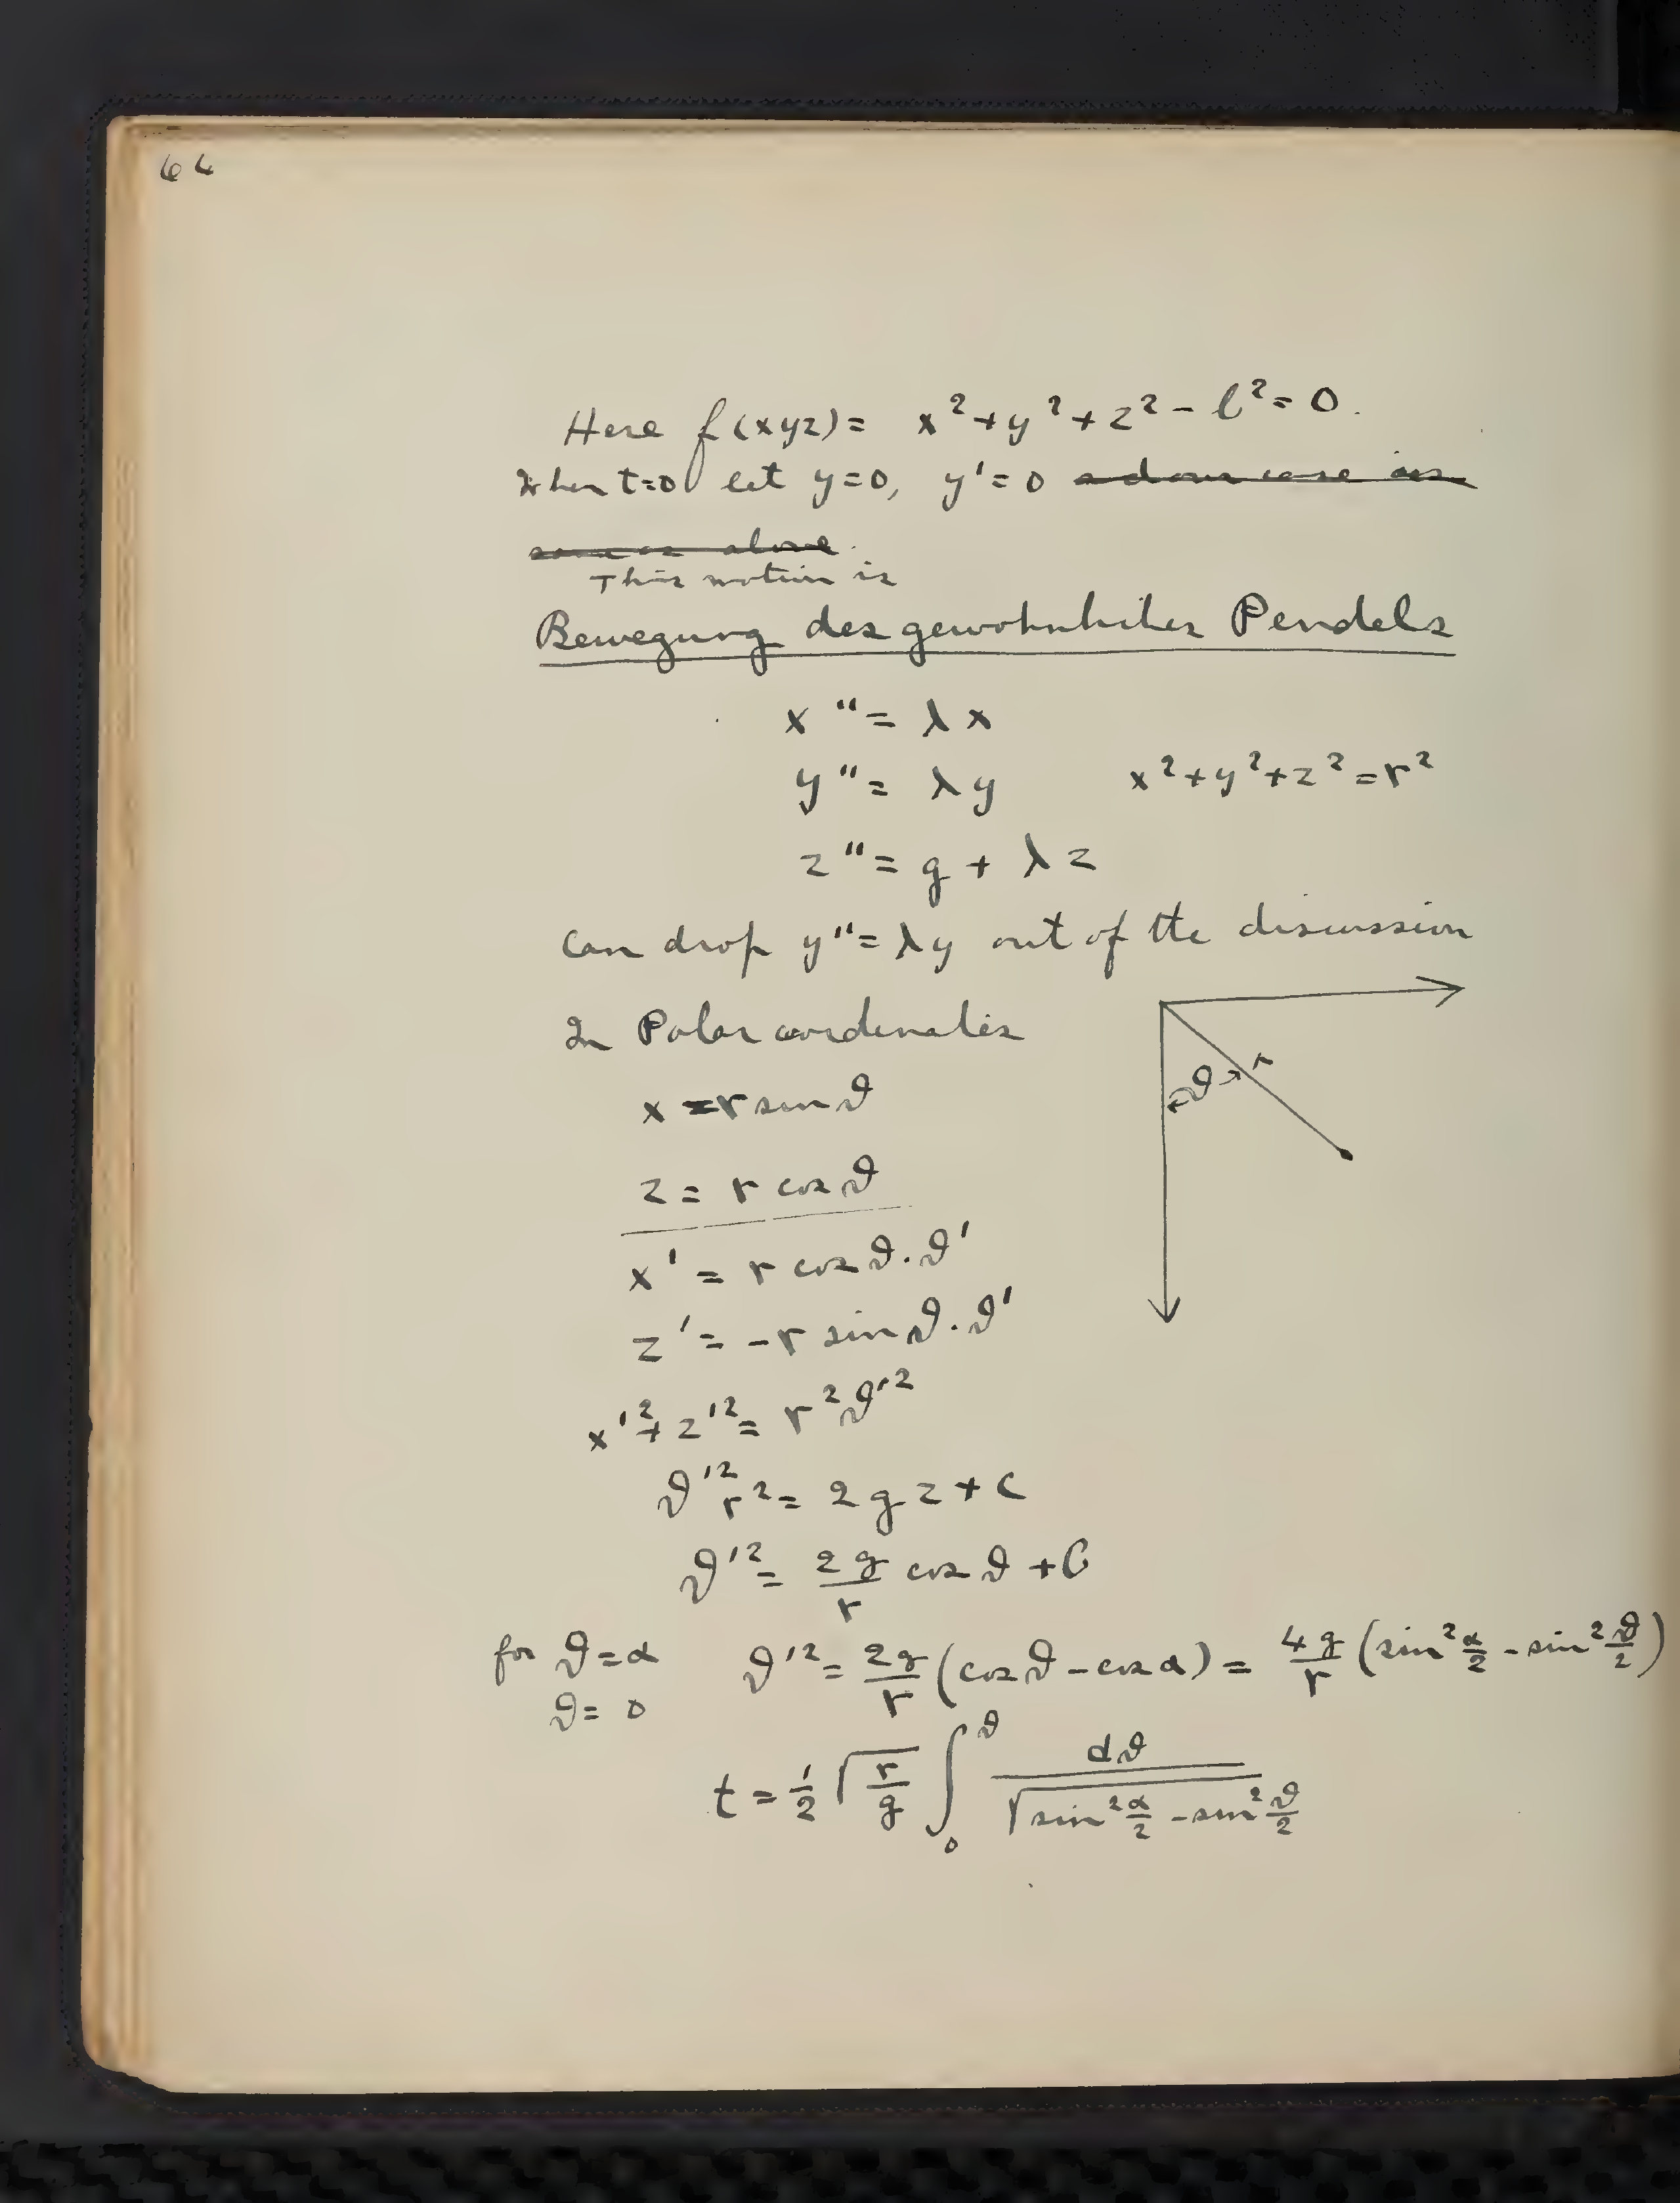 66
Here f(xyz) = x² + y² + z² - l² = 0.
When t=0 let y=0, y' = 0
This motion is
Bewegung des gewohnlichen Pendels
x'' = λx
y'' = λy x² + y² + z² = r²
z'' = g + λz
Can drop y'' = λy out of the discussion
In Polar coordinates
x = r sin ϑ
z = r cos ϑ
ϑ r
x' = r cos ϑ . ϑ'
z' = -r sin ϑ . ϑ'
x'² + z'² = r² ϑ'²
ϑ'² r² = 2gz + C
ϑ'² = 2g/r cos ϑ + C
for ϑ = α ϑ'² = 2g/r (cos ϑ - cos α) = 4g/r (sin² α/2 - sin² ϑ/2)
ϑ = 0
t = 1/2 √(r/g) ∫₀^ϑ dϑ / √(sin² α/2 - sin² ϑ/2)